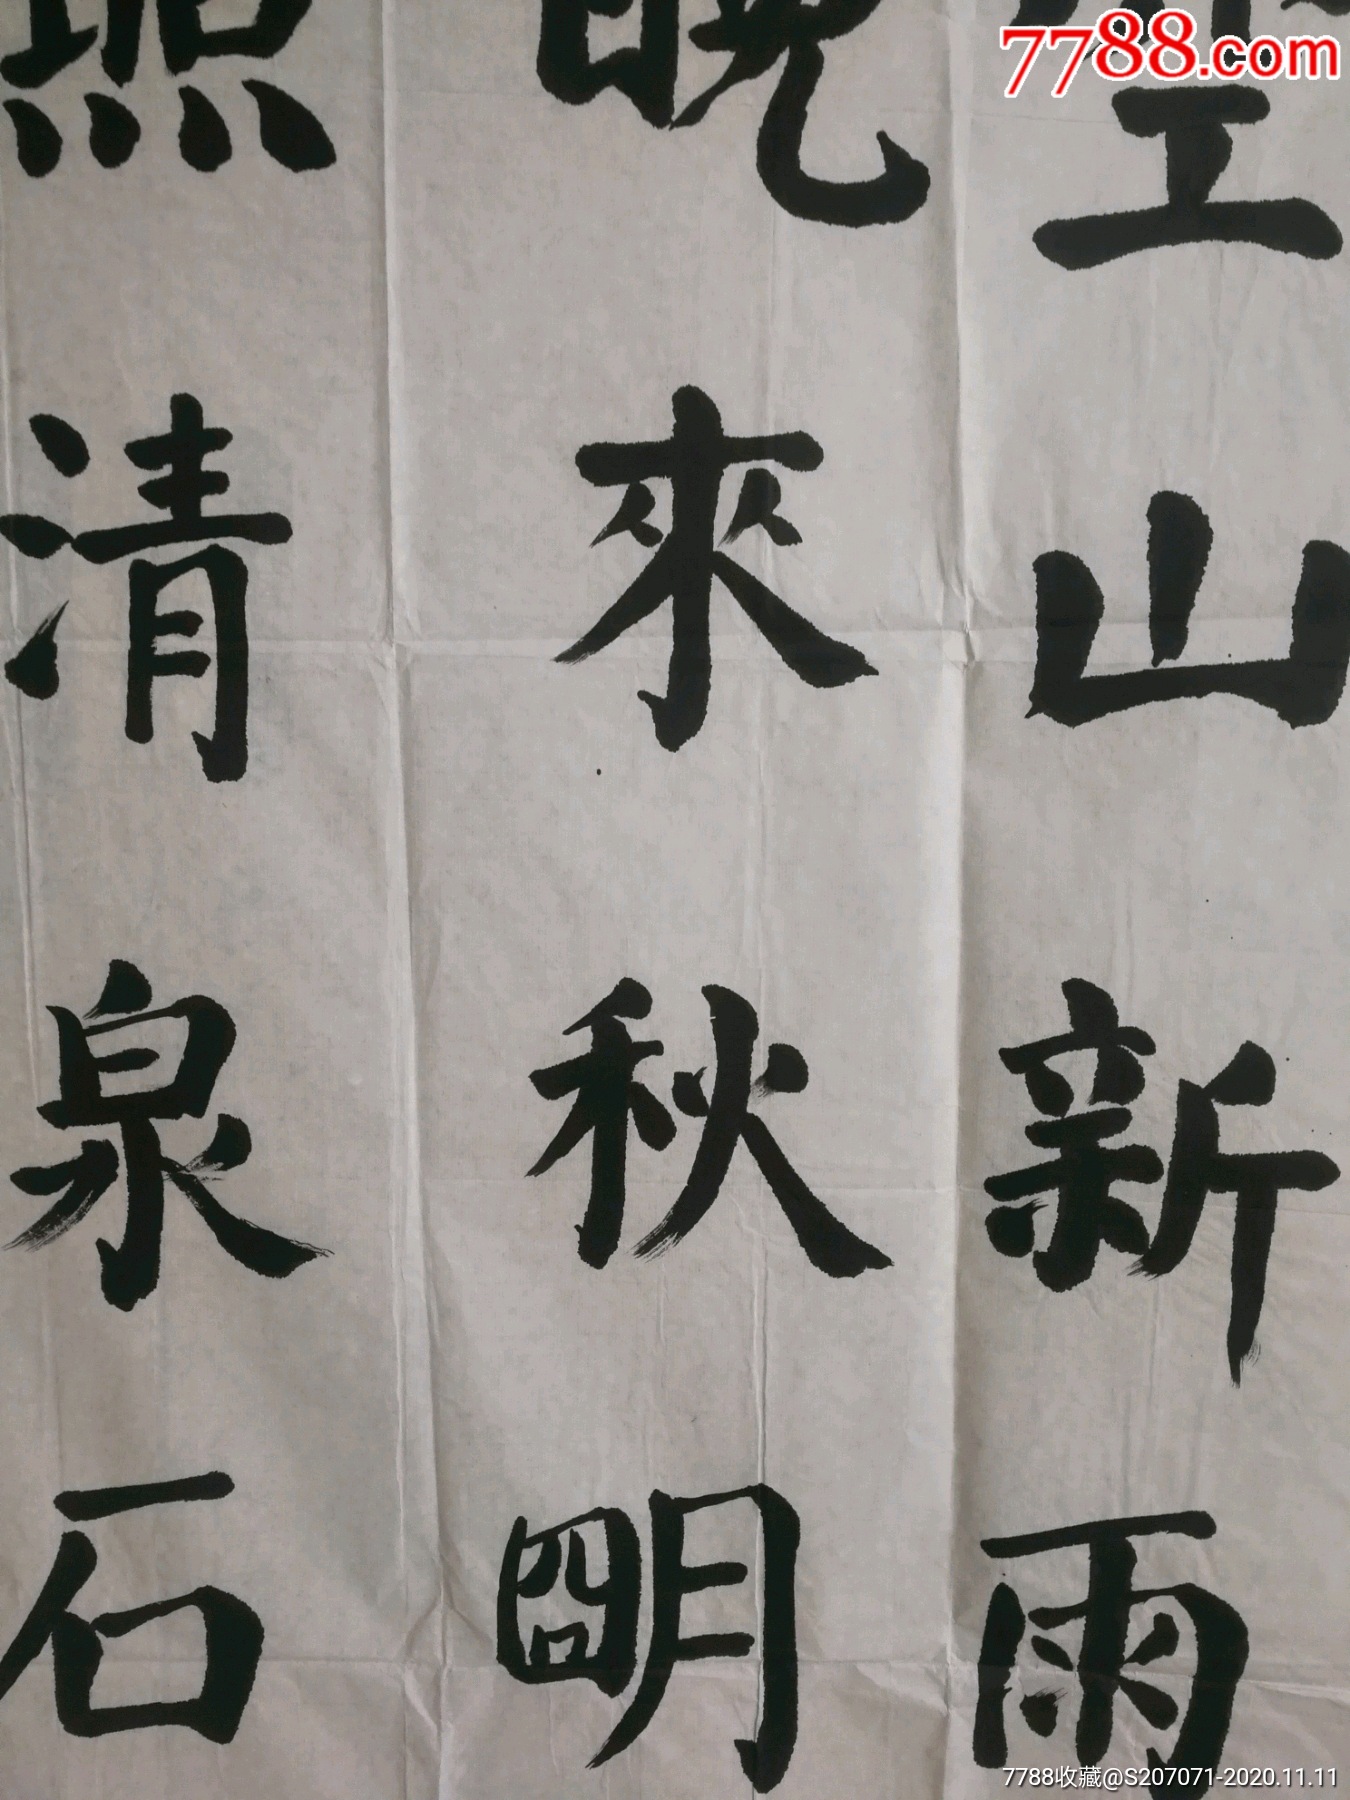 7788.com
空山新雨
晚來秋朙
照清泉石
7788收藏@S207071-2020.11.11